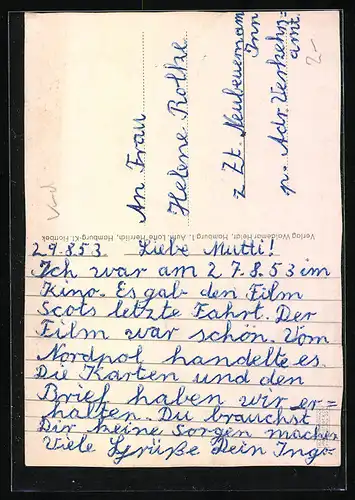 An Frau
Helene Roltke
z Zt. Neubeuern am
Inn
p. Adr. Verkehrs=
amt.
2-
Verlag Waldemar Heldt, Hamburg 1, Aufn. Lotte Herrlich, Hamburg-Kl. Flottbek
29.8.53. Liebe Mutti!
Ich war am 27.8.53 im
Kino. Es gab den Film
Scots letzte Fahrt. Der
Film war schön. Vom
Nordpol handelte es.
Die Karten und den
Brief haben wir er=
halten. Du brauchst
Dir keine Sorgen machen
Viele Grüße Dein Ingo